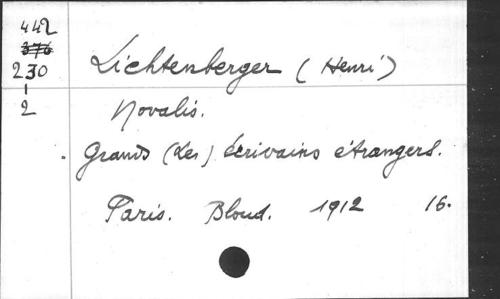 442
376
230
-
2
Lichtenberger (Henri)
Novalis.
Grands (Les) Écrivains étrangers.
Paris. Bloud. 1912 16.